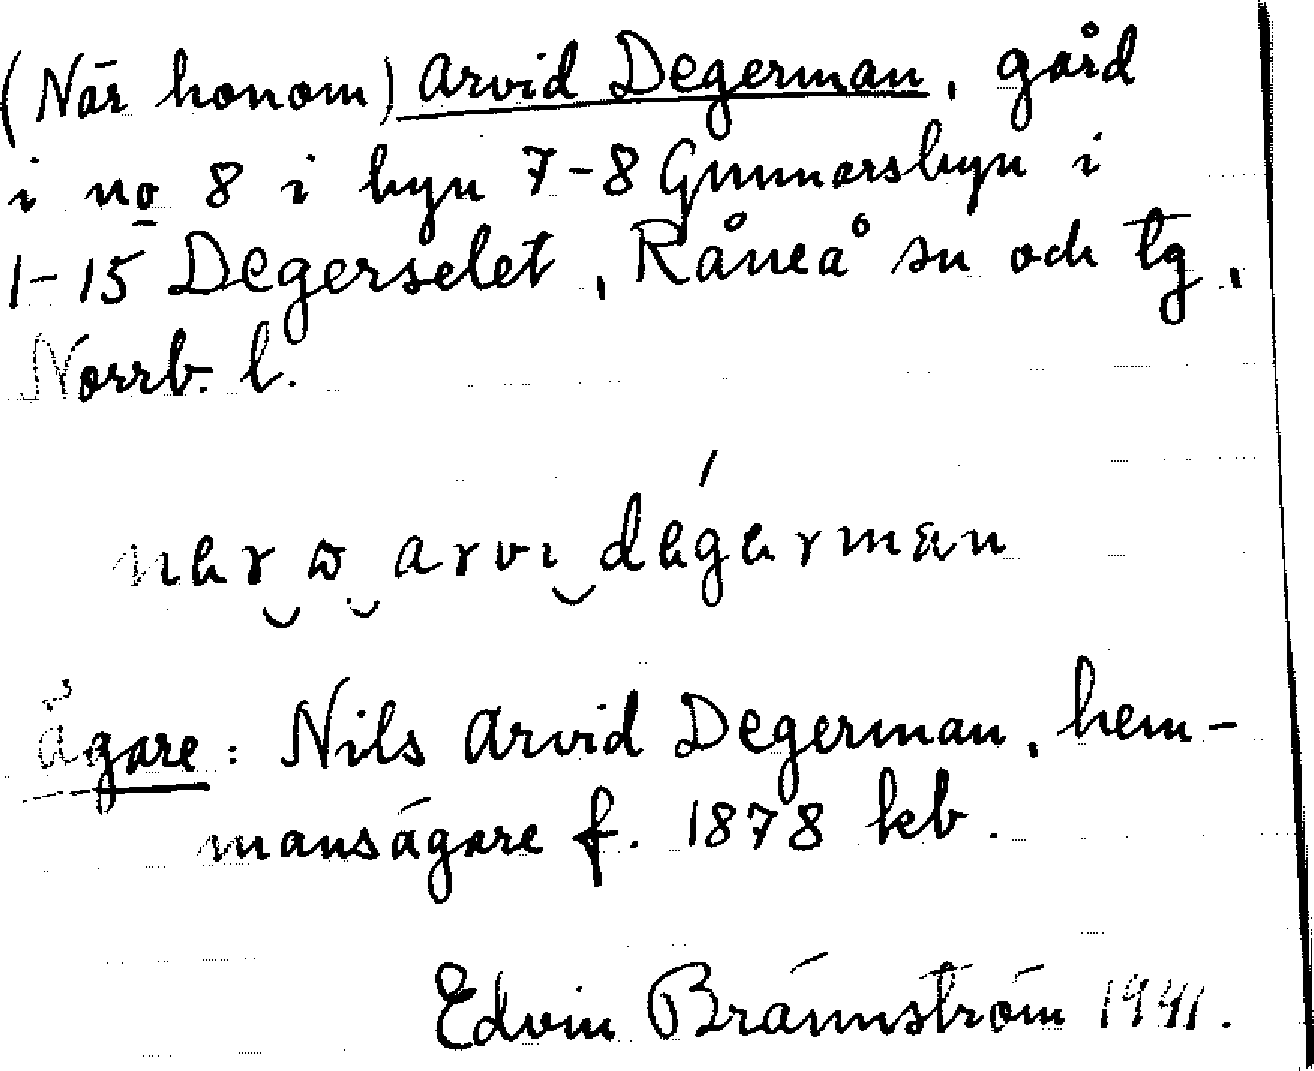 (När honom) Arvid Degerman, gård
i no 8 i byn 7-8 Gunnarsbyn i
1-15 Degerselet, Råneå sn och tg,
Norrb. l.
arvi
ägare: Nils Arvid Degerman, hem-
mansägare f. 1878 kb.
Edvin Brännström 1941.